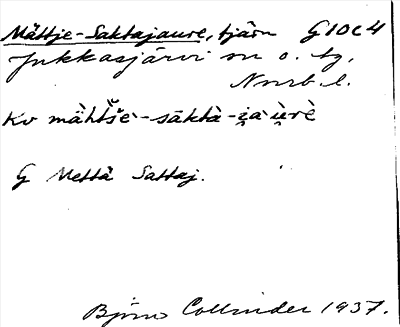 Mättje-Saktajaure, tjärn G10c4
Jukkasjärvi sn o. tg,
Norrb. l.
Kv mä̀htšè-sāktà-i̯àu̯rè
G Mettä Sattaj.
Björn Collinder 1937.